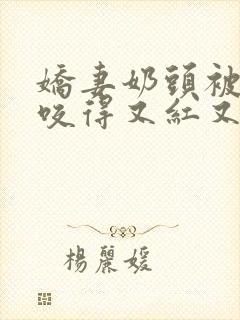 嬌妻奶頭被
咬得又紅又
楊麗媛